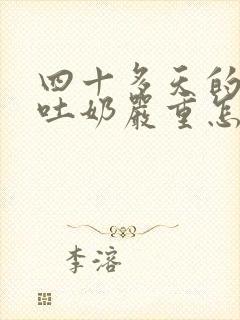 四十多天的
吐奶严重怎
李溶